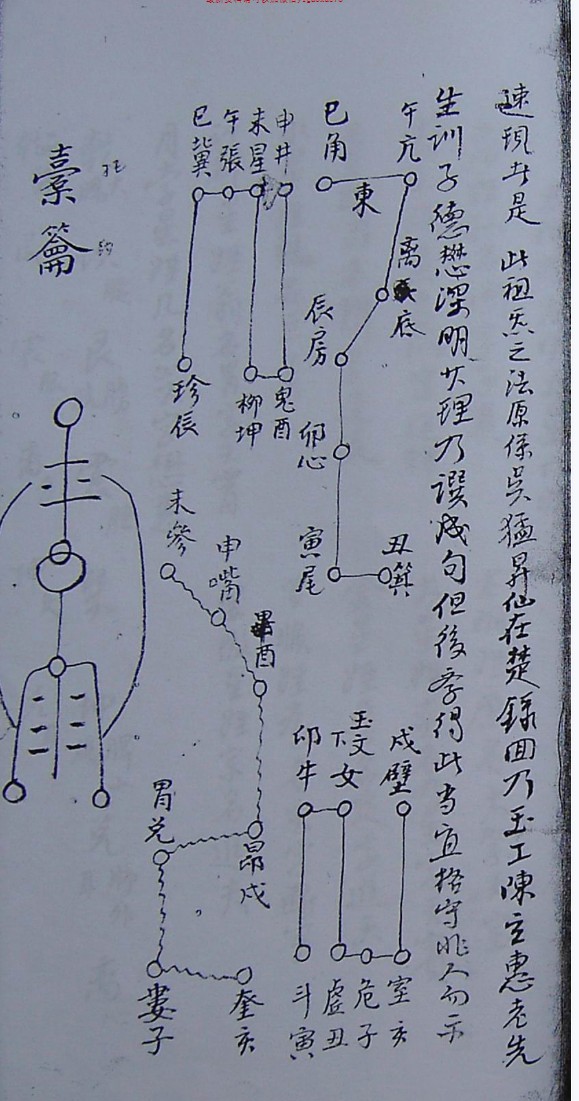 速現者是 此祖炁之法原係吳猛昇仙在楚錄回乃玉工陳立惠老先
生訓子德懋深明大理乃譔成句但後學得此当宜格守非人勿示
午亢
巳角
東
离
底
辰房
卯心
寅尾
丑箕
申井
未星
午張
巳翼
珍辰
柳坤
鬼酉
未參
申嘴
畢酉
昴戌
胃兑
婁子
奎亥
戌壁
玉文
下女
卯牛
斗寅
虛丑
危子
室亥
橐
籥